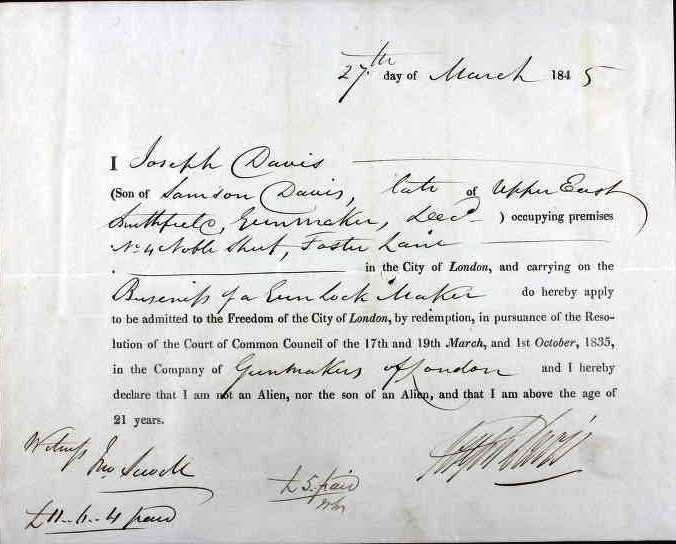 27.th day of March 1845
I Joseph Davis
(Son of Samson Davis, late of Upper East
Smithfield, Gunmaker, Decd ) occupying premises
No 4 Noble Street, Foster Lane
in the City of London, and carrying on the
Business of a Gun lock Maker do hereby apply
to be admitted to the Freedom of the City of London, by redemption, in pursuance of the Reso-
lution of the Court of Common Council of the 17th and 19th March, and 1st October, 1835,
in the Company of Gunmakers of London and I hereby
declare that I am not an Alien, nor the son of an Alien, and that I am above the age of
21 years.
Witness Jno Sewell
Joseph Davis
£5. paid
£11-6-4 paid